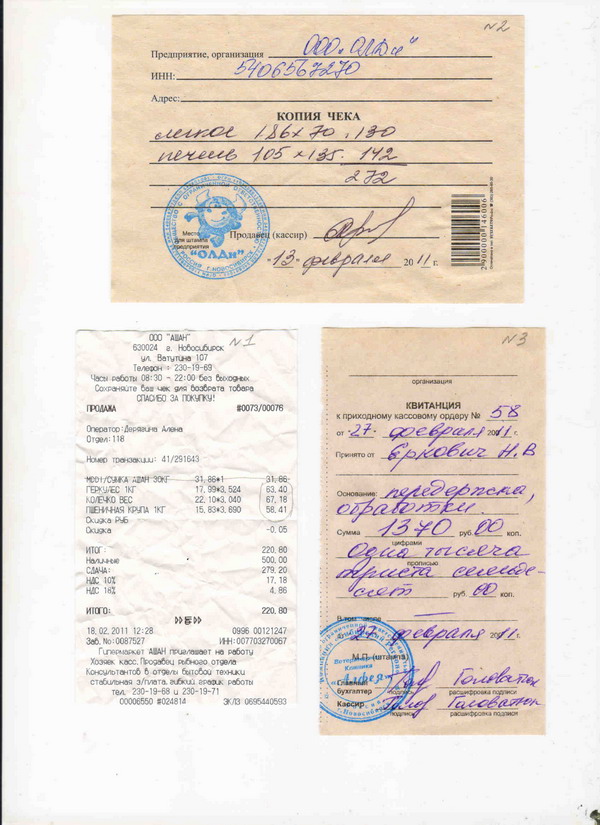 N2
Предприятие, организация ООО "ОЛДи"
ИНН: 5406567270
Адрес:
КОПИЯ ЧЕКА
легкое 1,86х70. 130
печень 105х135. 142
272
Место для штампа предприятия
"ОЛДи"
Продавец (кассир)
"13" февраля 2011 г.
2900000146006
N1
ООО "АШАН"
630024 г. Новосибирск
ул. Ватутина 107
Телефон : 230-19-69
Часы работы 08:30 - 22:00 без выходных
Сохраняйте Ваш чек для возврата товара
СПАСИБО ЗА ПОКУПКУ!
ПРОДАЖА #0073/00076
Оператор:Дерягина Алена
Отдел:118
Номер транзакции: 41/291643
СУМКА АШАН 30КГ 31,86*1 31,86
ГЕРКУЛЕС 1КГ 17,99*3,524 63,40
КОЛЕЧКО ВЕС 22,10*3,040 67,18
ПШЕНИЧНАЯ КРУПА 1КГ 15,83*3,690 58,41
Скидка РУБ
Скидка -0.05
ИТОГ: 220,80
Наличные 500,00
СДАЧА: 279,20
НДС 10% 17.18
НДС 18% 4.86
ИТОГО: 220,80
18.02.2011 12:28 0996 00121247
Зав.No:0087527 ИНН:007703270067
Гипермаркет АШАН приглашает на работу
Хозяек касс.Продавец рыбного отдела
Консультантов в отделы бытовой техники
стабильная з/плата.гибкий график работы
тел. 230-19-68 и 230-19-71
00006550 #024814 ЭКЛЗ 0695440593
N3
организация
КВИТАНЦИЯ
к приходному кассовому ордеру № 58
от "27" февраля 2011 г.
Принято от Еркович Н.В
Основание: передержка,
обработки.
Сумма 1370 руб. 00 коп.
цифрами
Одна тысяча
прописью
триста семьде-
сят руб. 00 коп.
В том числе
27 февраля 2011
М.П. (штампа)
Ветеринарная Клиника
Главный бухгалтер Головатюк
подпись расшифровка подписи
Кассир Головатюк
подпись расшифровка подписи